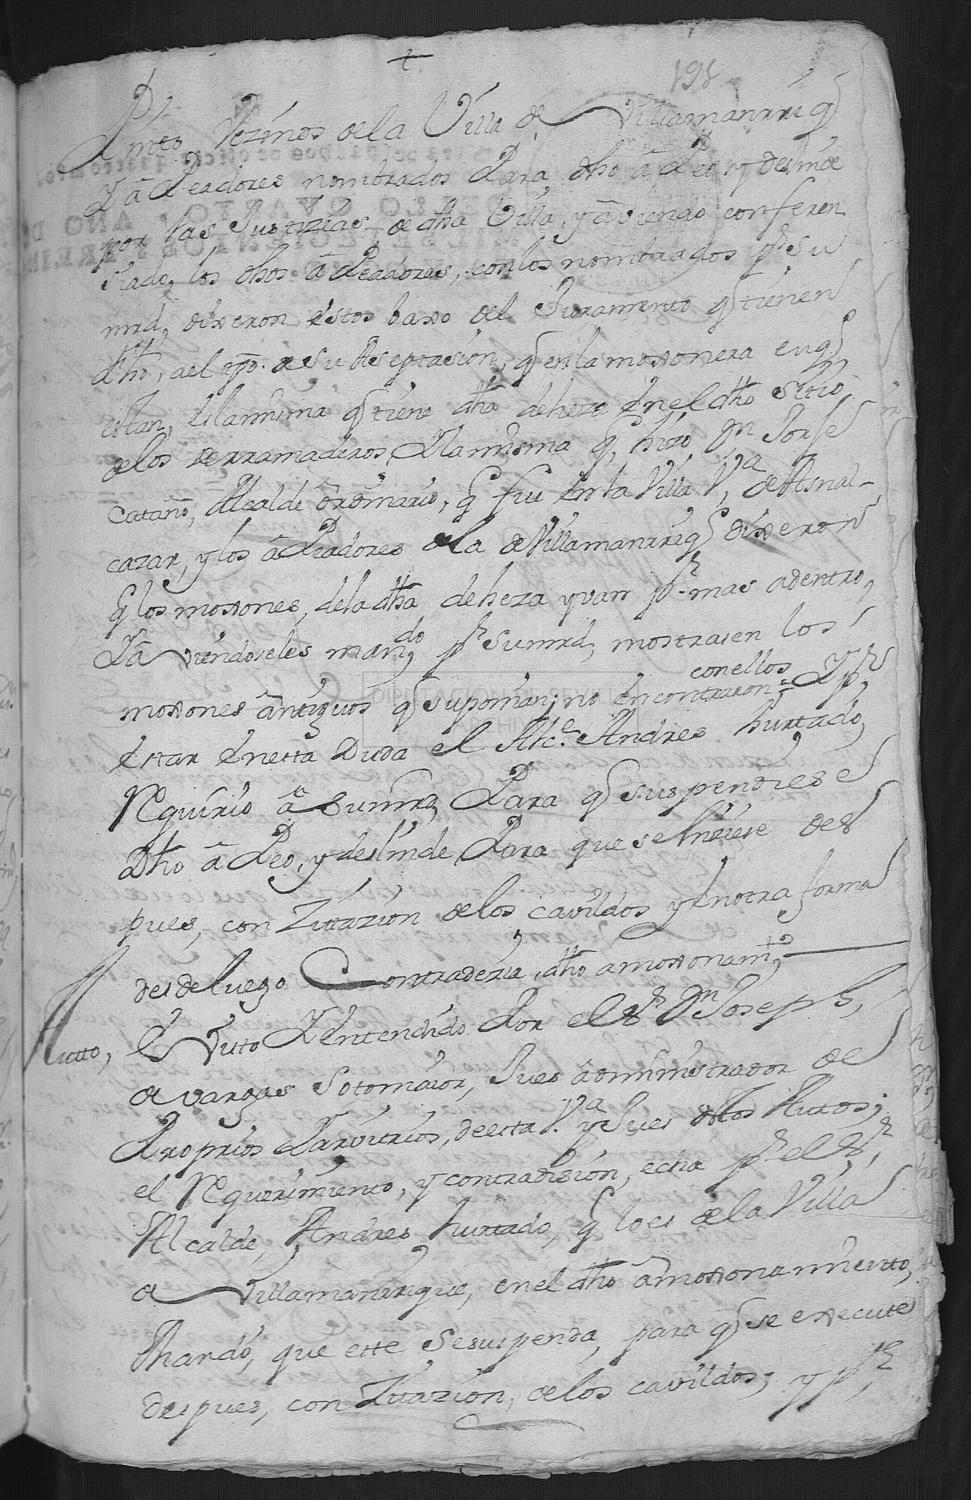 +
198
Pinto, Vezinos de la Villa de Villamanrriq
Y âPeadores nombrados Para dho âPeo y deslinde
por las Justizias de dha Villa, y aviendo conferen
siado, los dhos âPeadores, con los nombrados pr Su
mrd, dixeron estos baxo del Juramento q tienen
dho, al tpo. de su Aseptasion, q en la moxonera enq
estan, es la misma q tiene dha deheza En el dho Sitio
de los derramaderos, Y la misma q hizo Dn Jorse
Cataño, Alcalde ôrdinario, q fue En la Villa Va de Asnal-
cazar, y los âPeadores de la de Villamanrriq dixeron
q los moxones, de la dha deheza yvan pr mas adentro,
Y âviendoseles mando, pr Su mrd, mostrasen los
moxones ântiguos q suponian; no Encontraron conellos Y pr
Estar En esta Duda el Alce Andres hurtado,
Requirio â Su mrd Para q suspendiese
Dho âPeo, y deslinde Para que se hiziese des
pues, con Zitazion de los cavildos y En otra forma
desde luego Contradezia dho amoxonamto
Autto, E Visto Y Entendido Por el Sr Dn Joseph,
de vargas Sotomaior, Jues administrador de
Proprios Y arvitrios, de esta Va y Jues destos Autos;
el Requerimiento, y contradision, echa pr el Sr
Alcalde, Andres hurtado, q lo es de la Villa
de Villamanrrique, en el dho âmoxonamiento,
Mando, que este se suspenda, para q se execute
despues, con Zitazion, de los cavildos; y pr